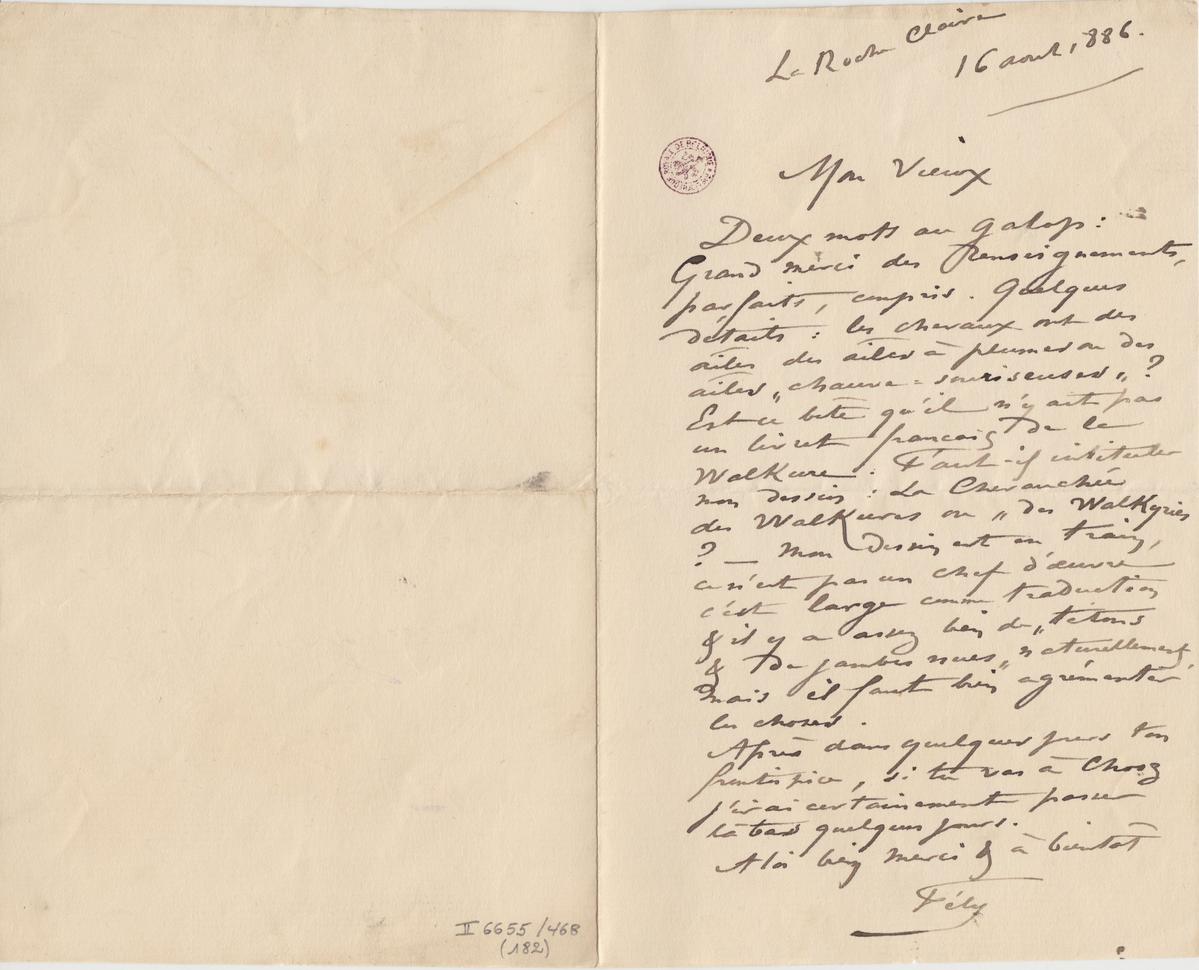 La Roche Claire
16 aout 1886.
BIBLIOTHÈQUE ROYALE DE BELGIQUE
Mon Vieux
Deux mots au galop :
Grand merci des Renseignements,
parfaits, compris. Quelques
détails : les chevaux ont des
ailes des ailes à plumes ou des
ailes „chauve=souriseuses„ ?
Est ce bête qu'il n'y ait pas
un livret français de la
Walkure. Faut-il intituler
mon dessin : La Chevauchée
des Walkures ou „des Walkyries
? — Mon Dessin est en train,
ce n'est pas un chef d'œuvre
c'est large comme traduction
& il y a assez bien de „tetons
& de jambes nues„ naturellement,
mais il faut bien agrémenter
les choses.
Après dans quelques jours ton
frontispice, si tu vas à
j'irai certainement passer
là bas quelques jours.
A toi bien merci & à bientôt
Fély
II 6655 / 468
(182)